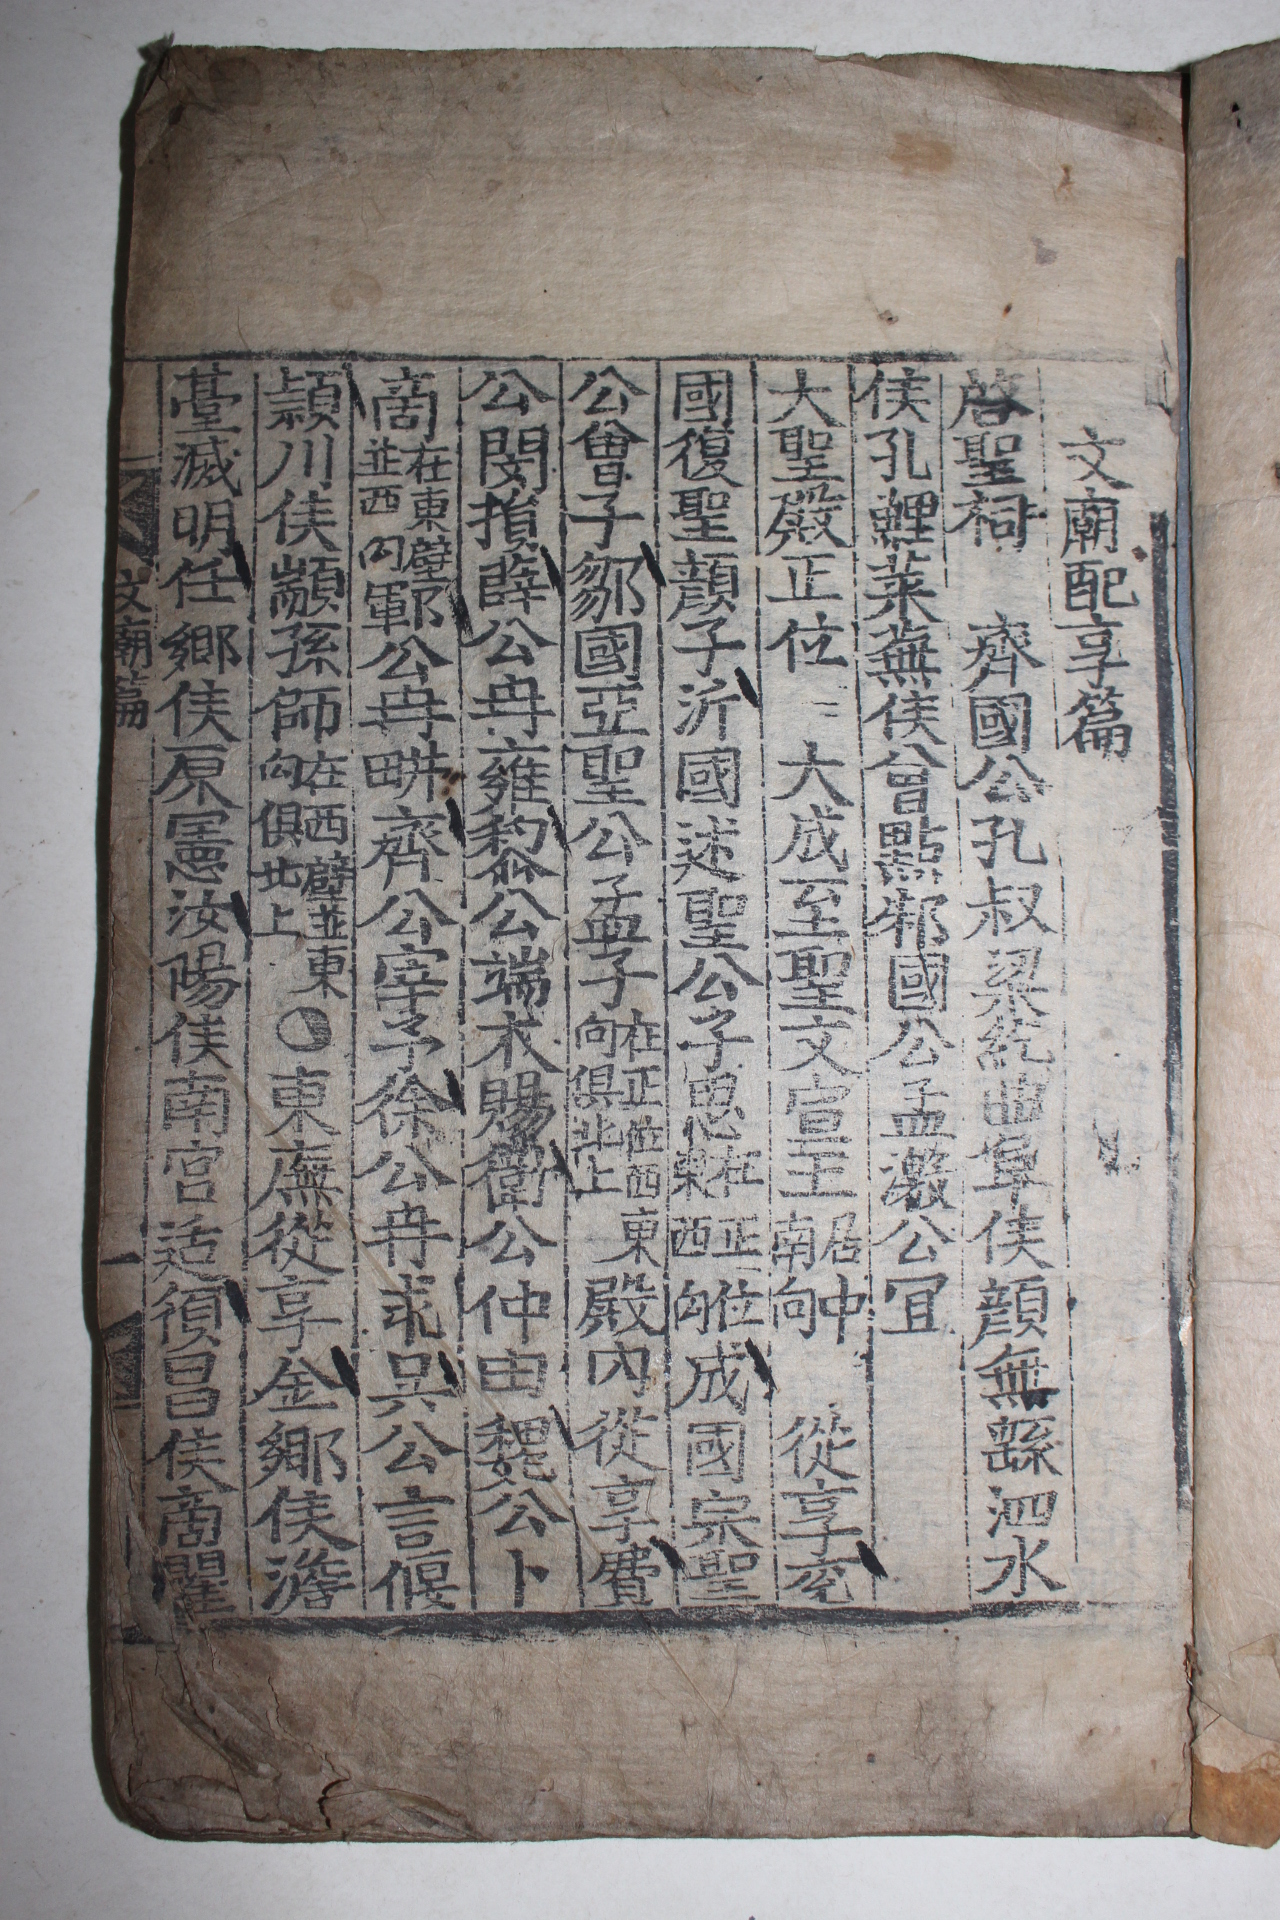 文廟配享篇
啓聖祠　齊國公孔叔梁紇曲阜侯顔無繇泗水
侯孔鯉萊蕪侯曾點邾國公孟激公冝
大聖殿正位　大成至聖文宣王居中南向　從享兖
國復聖顔子沂國述聖公子思在正位東西向成國宗聖
公曾子鄒國亞聖公孟子在正位西東向俱北上殿內從享費
公閔損薛公冉雍黎公端木賜衛公仲由魏公卜
商在東壁並西向鄆公冉畊齊公宰予徐公冉求吳公言偃
潁川侯顓孫師在西壁並東向俱北上○東廡從享金鄕侯澹
臺滅明任鄕侯原憲汝陽侯南宮适須昌侯商瞿
文廟篇　一